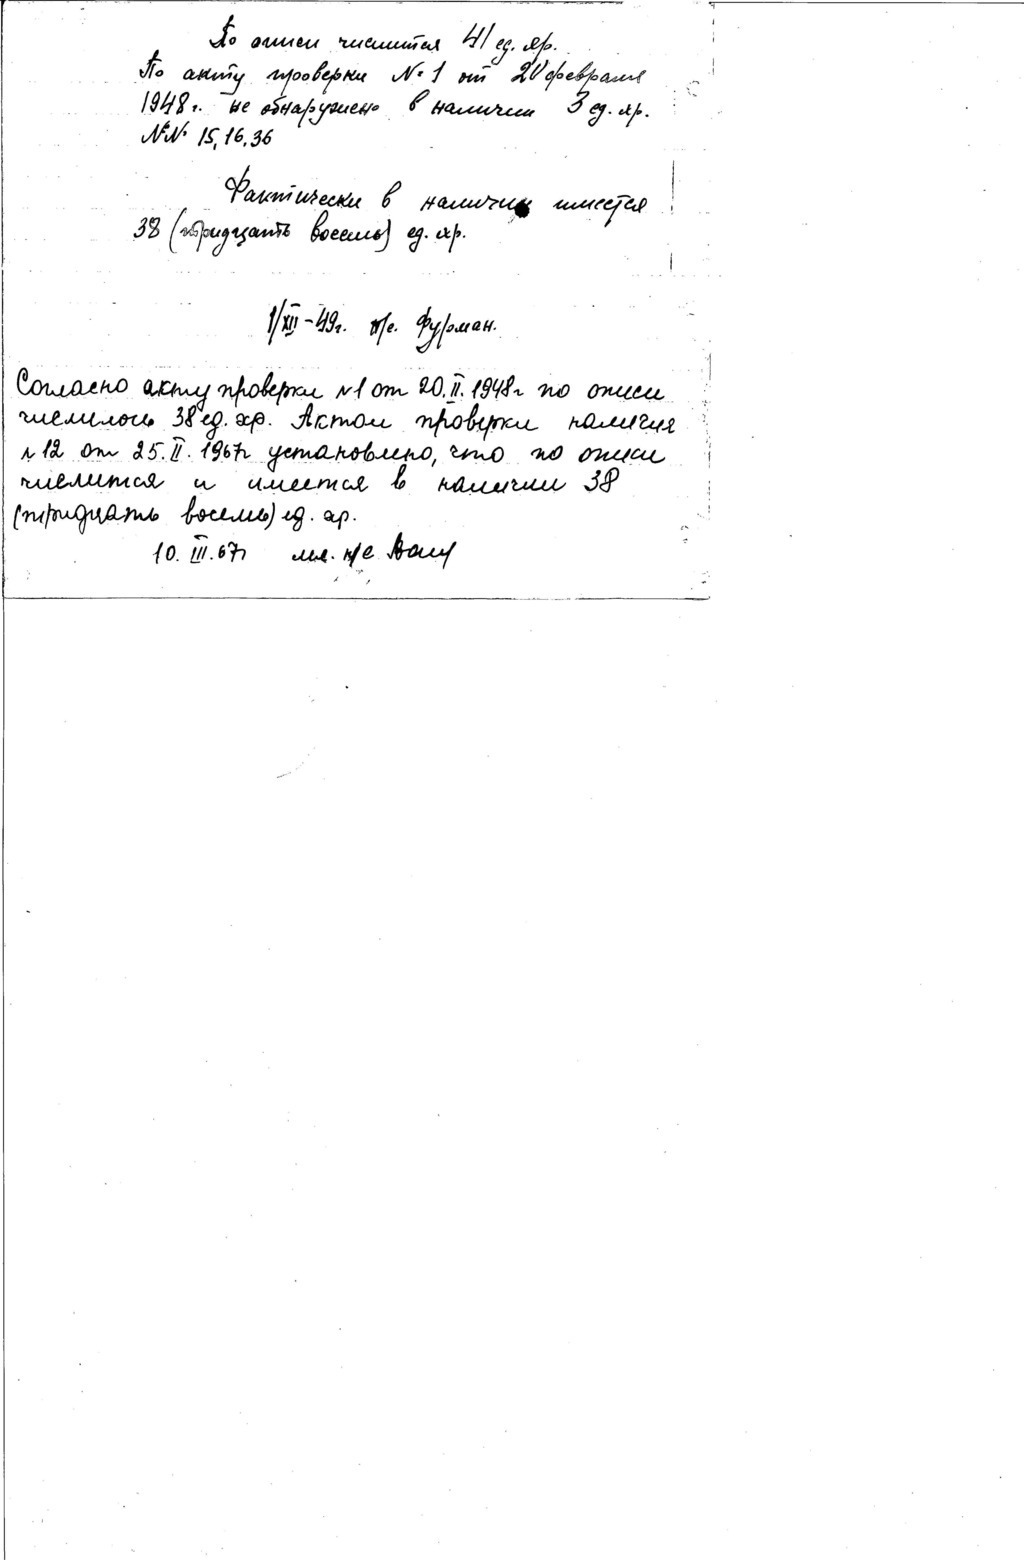 По описи числится 41 ед. хр.
По акту проверки №1 от 20 февраля
1948г. не обнаружено в наличии 3 ед. хр.
№№ 15, 16, 36
Фактически в наличии имеется
38 (тридцать восемь) ед. хр.
1/XII-49г. н/с. Фурман.
Согласно акту проверки №1 от 20.II.1948г по описи
числилось 38 ед. хр. Актом проверки наличия
№12 от 25.II.1967г установлено, что по описи
числится и имеется в наличии 38
(тридцать восемь) ед. хр.
10.III.67г мл. н/с